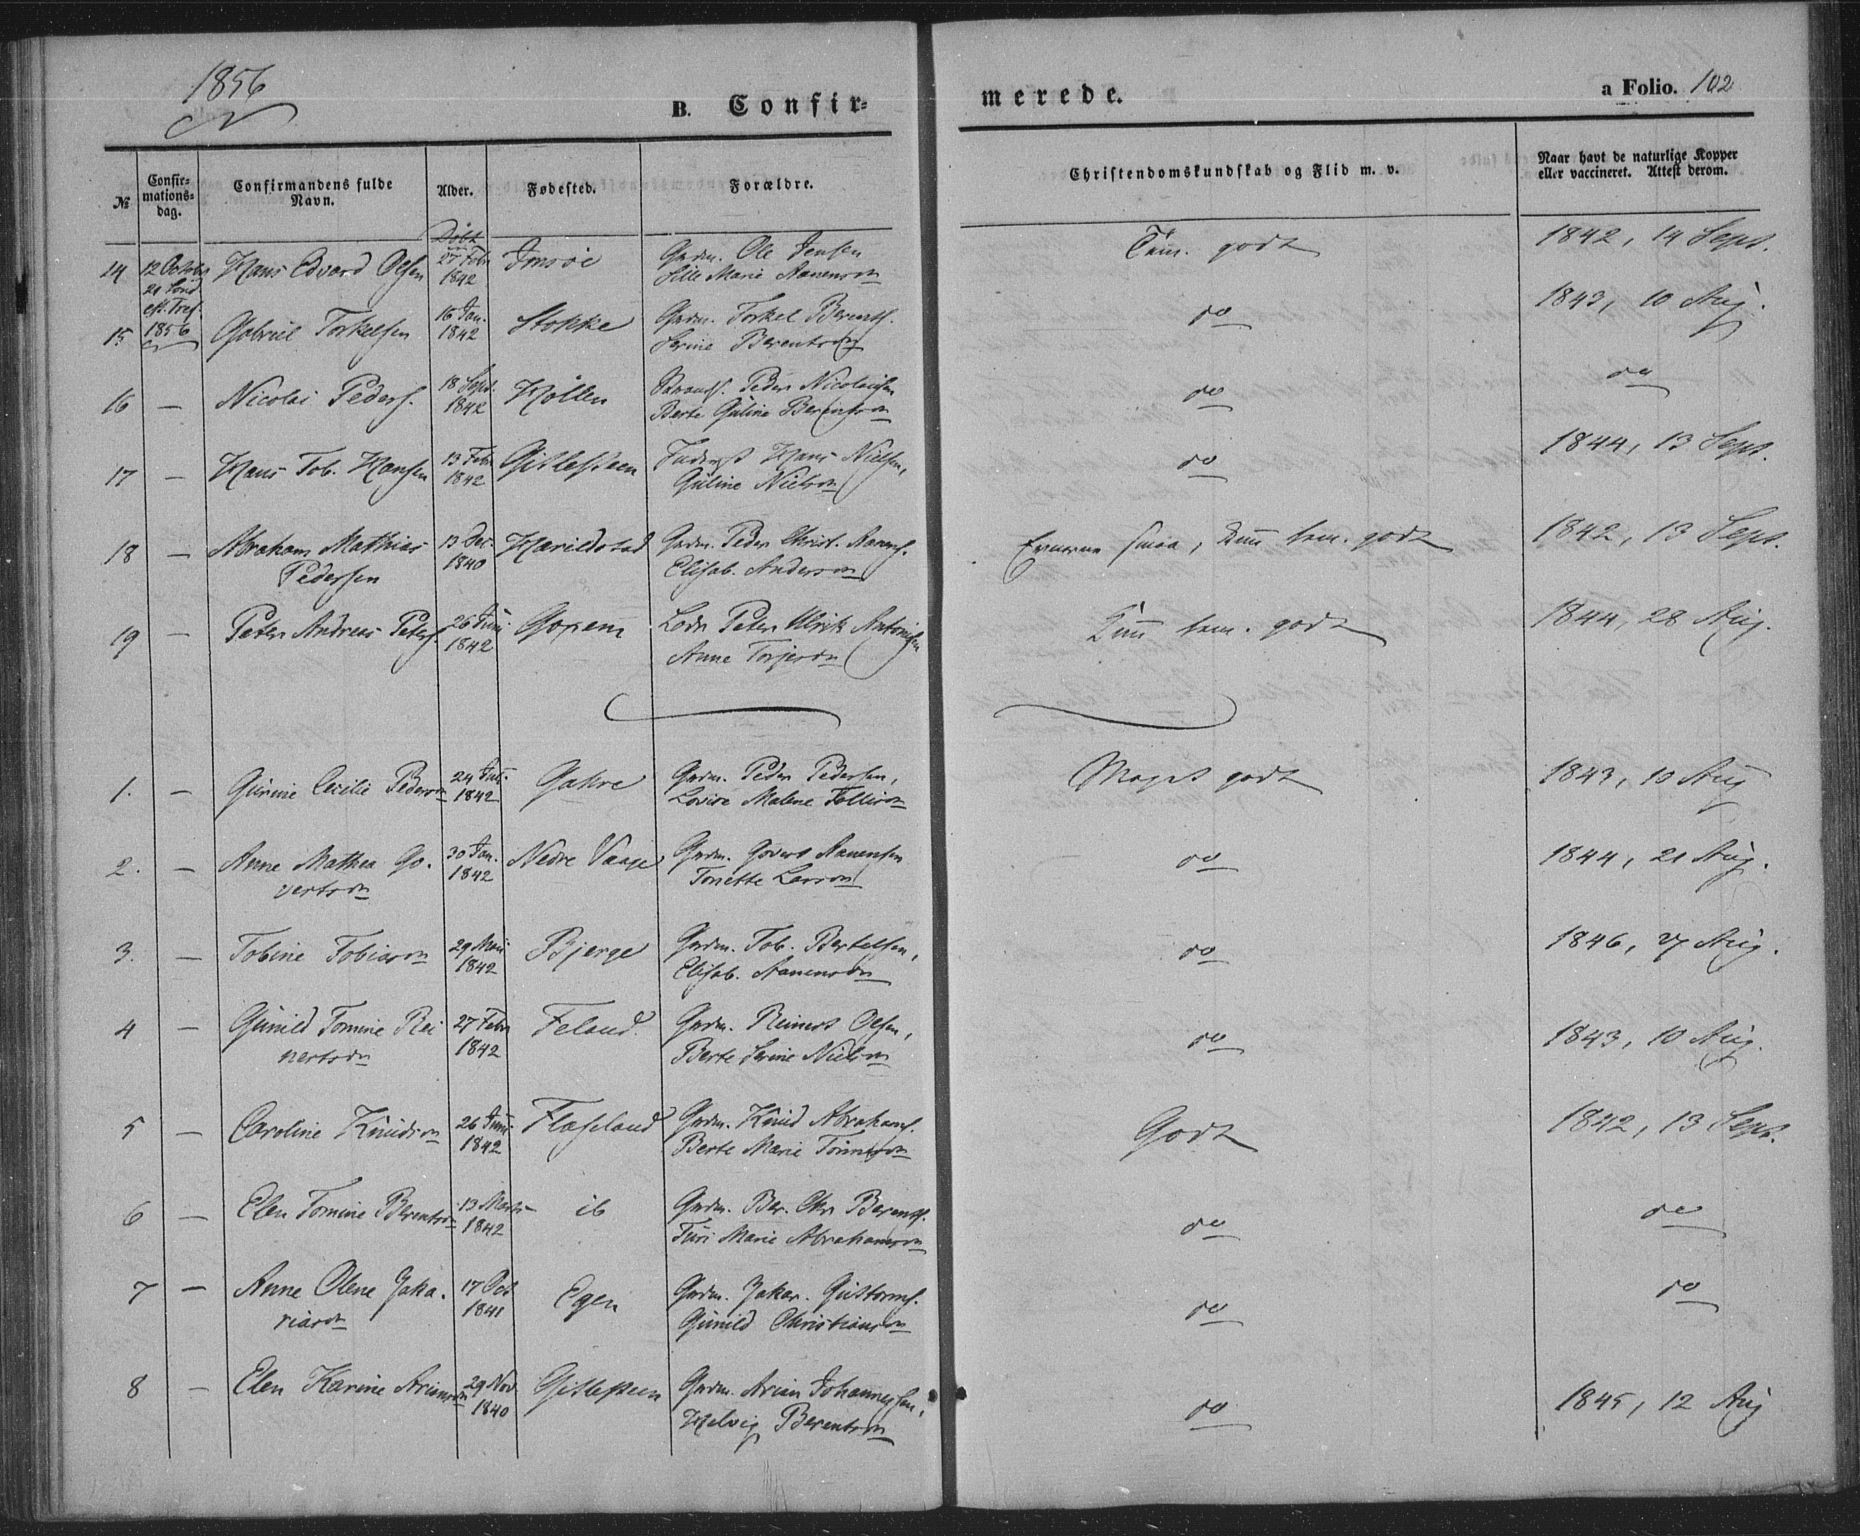 1856
B. Confir-
merede.
a Folio. 102
№
Confir-
mations-
dag.
Confirmandens fulde
Navn.
Alder.
Fødested.
Forældre.
Christendomskundskab og Flid m. v.
Naar havt de naturlige Kopper
eller vaccineret. Attest derom.
Døbt
14 12 Octobr Hans Edvard Olsen 27 Febr 1842 Imsøe Grdm. Ole Jensen
Sille Marie Aanensdn
Tem. godt 1842, 14 Sept.
21 Sønd
eft. Tref.
1856
15 Gabriel Torkelsen 16 Jan. 1842 Stokke Grdm. Torkel Berents.
Serine Berentsdn
do 1843, 10 Aug.
16 — Nicolai Peders. 18 Sept. 1842 Kollen Peder Nicolaisen
Berte Guline Berentsdn
do do
17 — Hans Tob. Hansen 13 Febr 1842 Gislesteen Hans Nielsen,
Guline Nielsdn
do 1844, 13 Sept.
18 — Abraham Mathias 13 Dec. 1840 Harildstad Grdm. Peder Christ. Aanens.
Pedersen Elisab. Andersdn
Evnerne smaa, Kun tem. godt 1842, 13 Sept.
19 — Peter Andreas Peters. 26 Juni 1842 Goxem Lods Peter Ulrik Antonisen
Anne Torjersdn
Kun tem. godt 1844, 28 Aug.
1. — Gurine Cecilie Pedersdn 24 1842 Gahre Grdm. Peder Pedersen,
Lovise Malene Tellisdn
Meget godt 1843, 10 Aug
2. — Anne Mathea Go- 30 Jan. 1842 Nedre Vaage Grdm. Govert Aanensen
vertsdn Tonette Larsdn
do 1844, 21 Aug.
3. — Tobine Tobiasdn 29 Mai 1842 Bjerge Grdm. Tob. Bertelsen,
Elisab. Aanensdn
do 1846, 27 Aug.
4 — Gunild Tomine Rei 27 Febr 1842 Feland. Grdm. Reinert Olsen,
nertsdn Berte Serine Nielsdn
do 1843, 10 Aug.
5 — Caroline Knudsdn 26 Juni 1842 Flaseland Grdm. Knud Abrahams.
Berte Marie Tønnesdn
Godt 1842, 13 Sept.
6 — Elen Tomine Berentsdn 13 Marts 1842 ib Grdm. Ber. Chr Berents.
Turi Marie Abrahamsdn
do do
7 — Anne Olene Zaka- 17 Oct 1841 Egen Grdm. Zakar. Guttorms.
riasdn Gunild Christiansdn
do do
8 — Elen Karine Ariansdn 29 Nov 1840 Gislesteen Grdm. Arian Johannessen,
Helvig Berentsdn
do 1845, 12 Aug